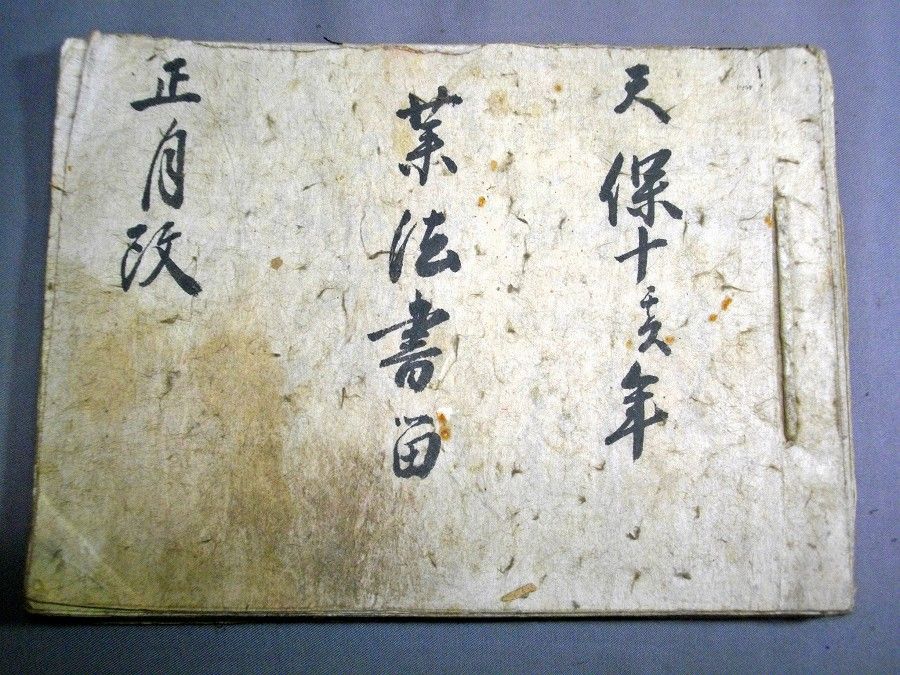 天保十亥年
薬法書留
正月改